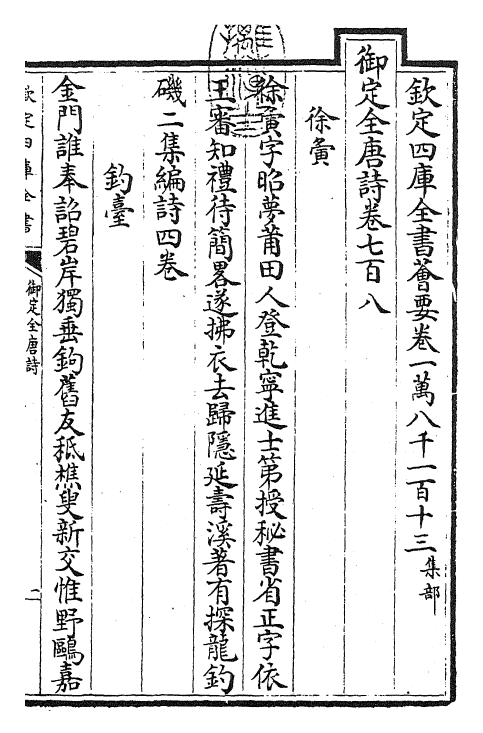 欽定四庫全書薈要卷一萬八千一百十三集部
御定全唐詩卷七百八
徐夤
徐夤字昭夢莆田人登乾寧進士第授秘書省正字依
王審知禮待簡畧遂拂衣去歸隱延壽溪著有探龍釣
磯二集編詩四卷
釣臺
金門誰奉詔碧岸獨垂鉤舊友秪樵叟新交惟野鷗嘉
欽定四庫全書
御定全唐詩